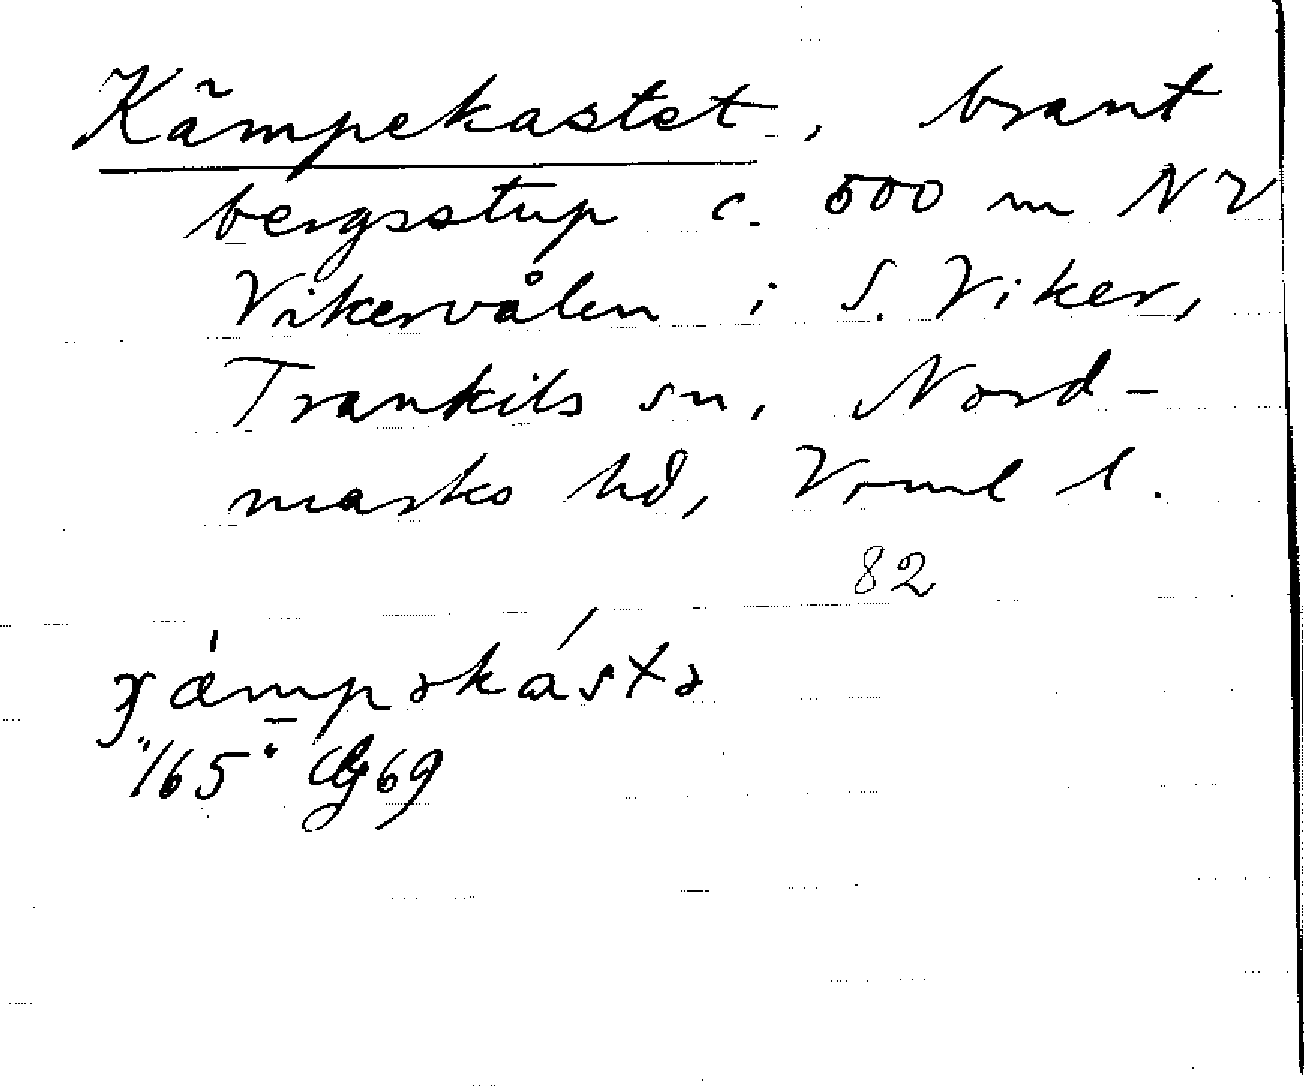 Kämpekastet, brant
bergsstup c. 500 m NV
Vikervålen i S. Viker,
Trankils sn, Nord-
marks hd, Vrml l.
82
69